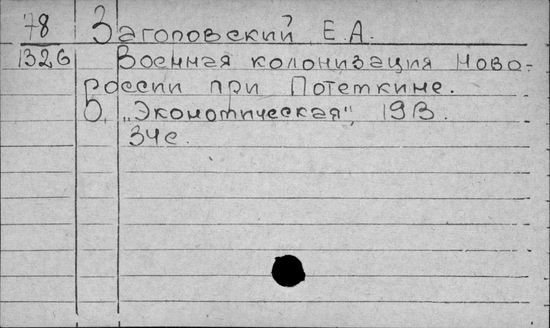 78 Загоровский Е.А.
1326 Военная колонизация Ново-
россии при Потемкине.
О, "Экономическая", 1913.
34с.